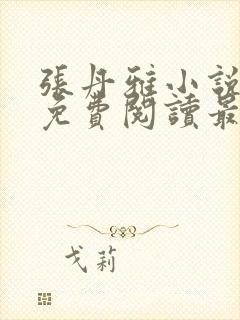 張丹雅小說
免費閱讀最
戈莉